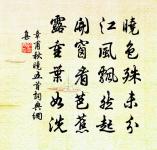 曉色殊未分
江風飄然起
開窗看芭蕉
露重葉如洗
章甫秋曉五首詞典網